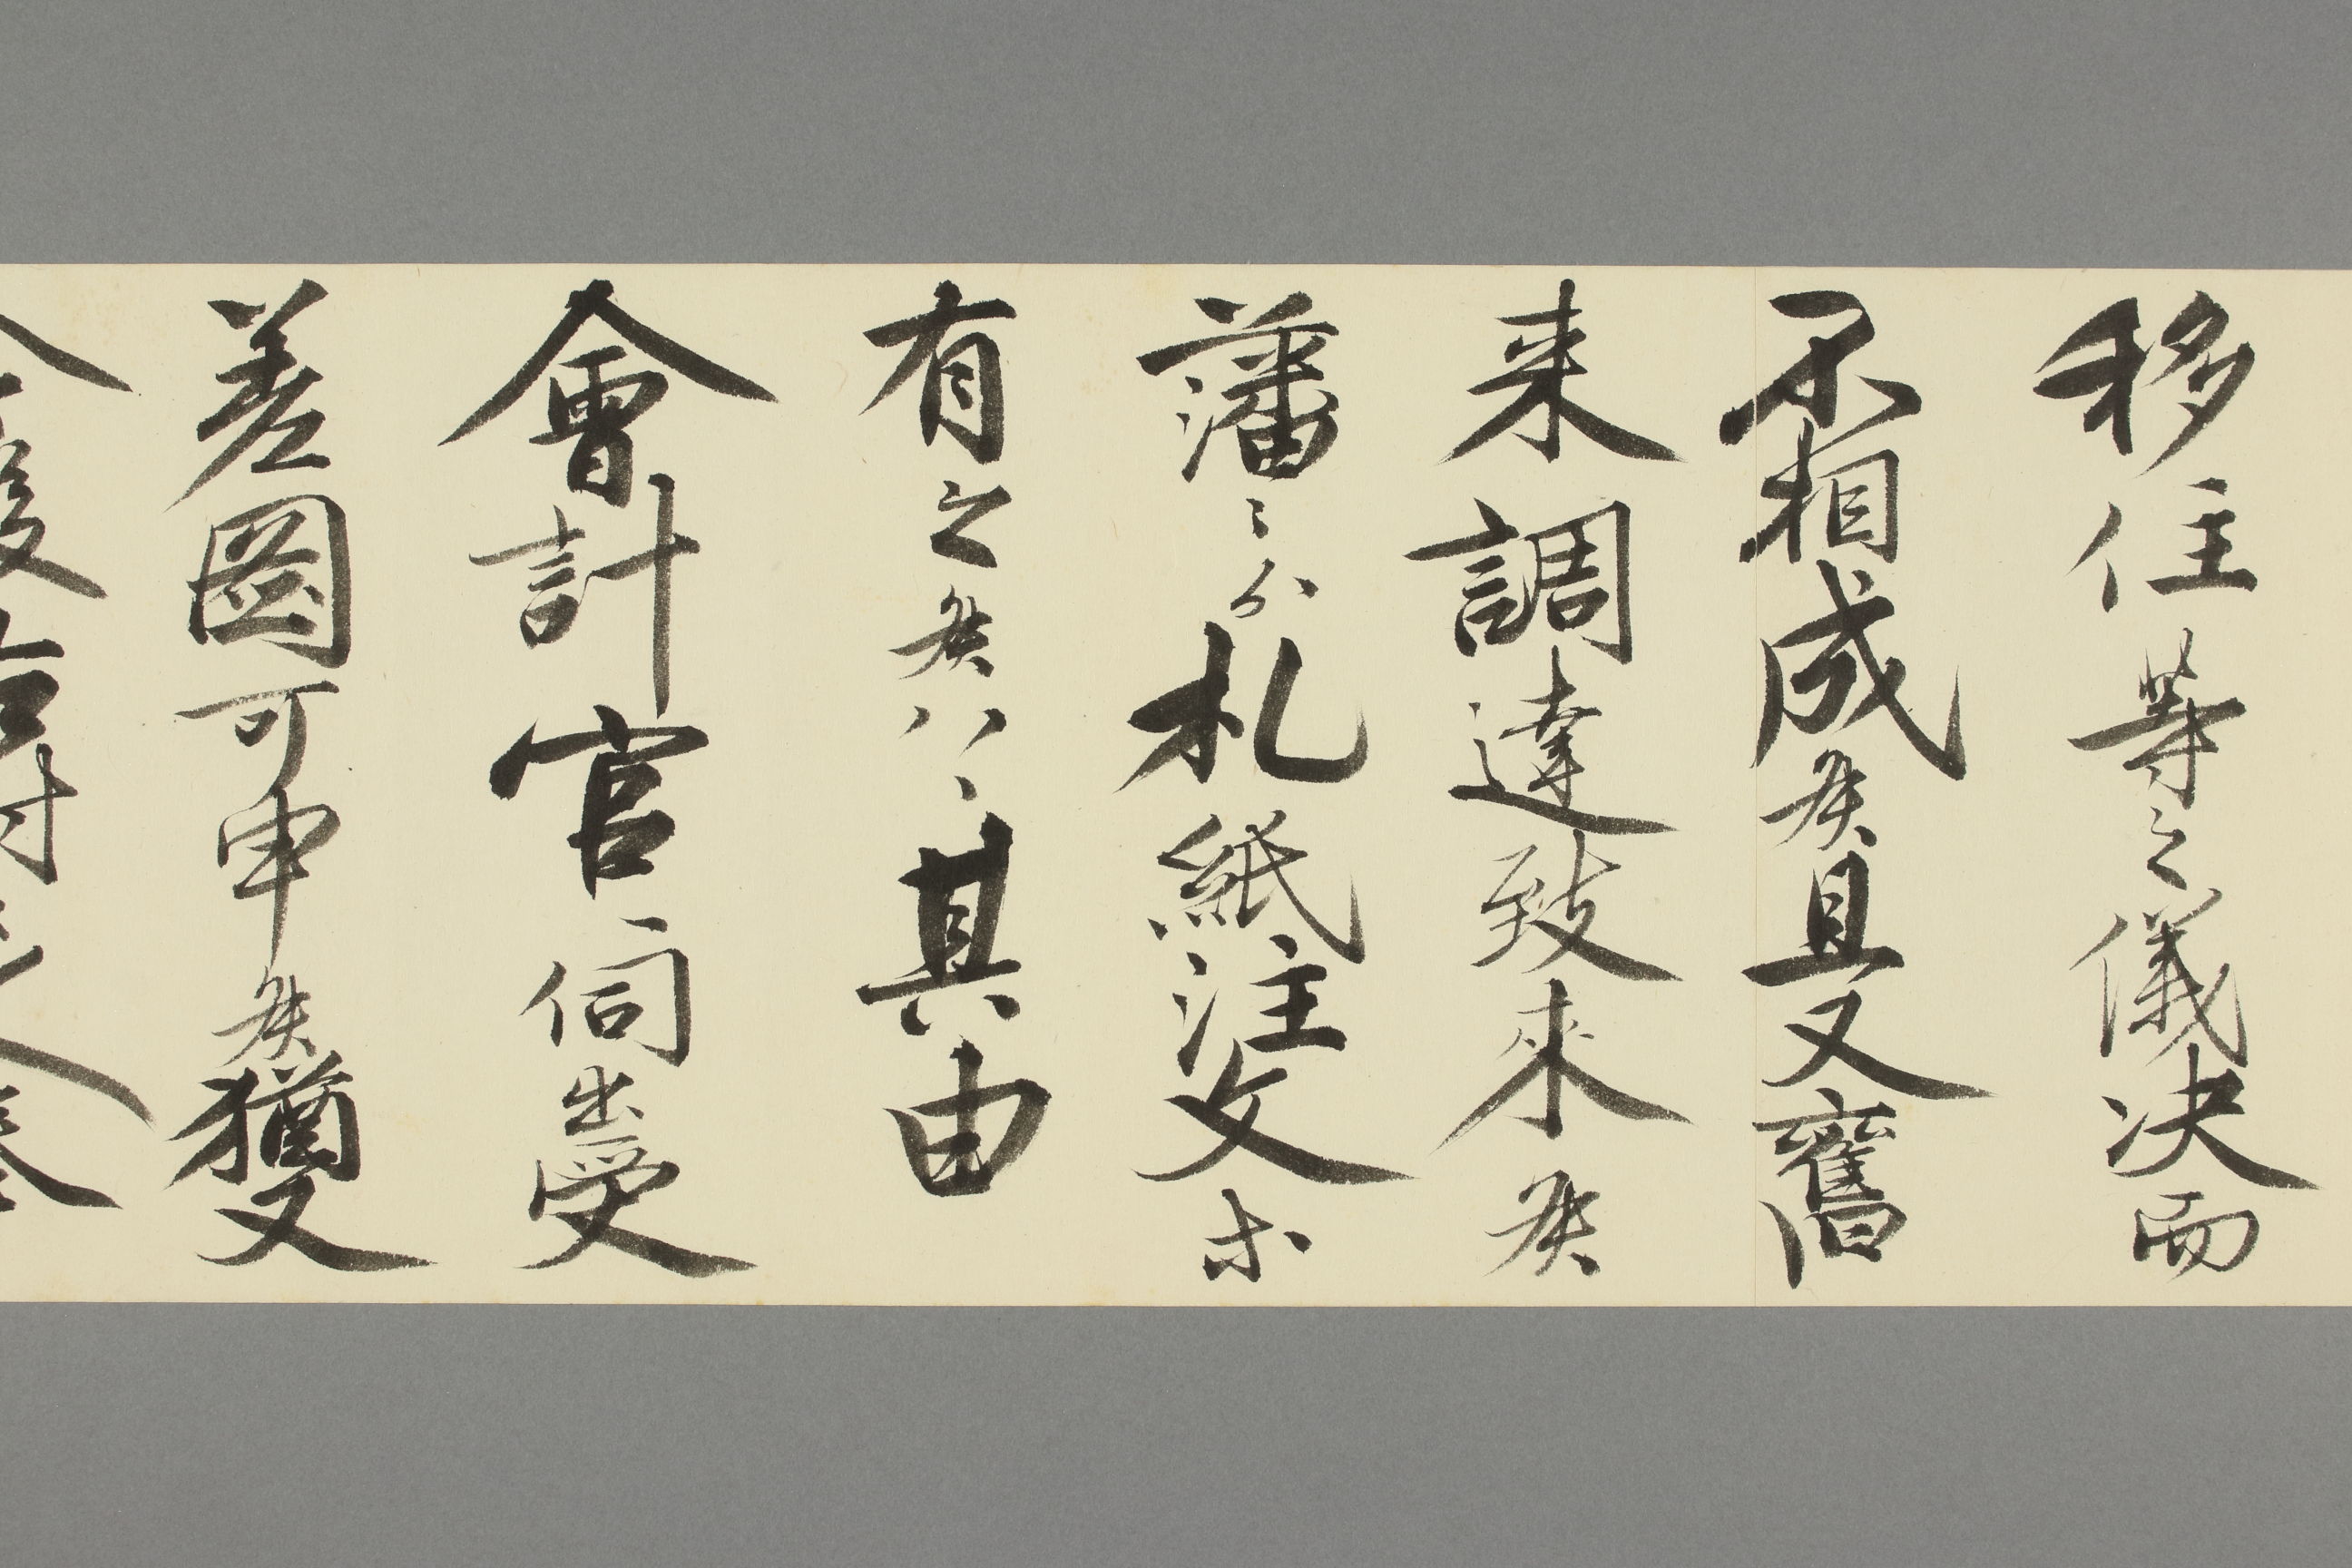 移住等之儀決而
不相成候且又舊
来調達致来候
藩々ゟ札紙注文ホ
有之候ハヽ其由
會計官伺出受
差圖可申候猶又